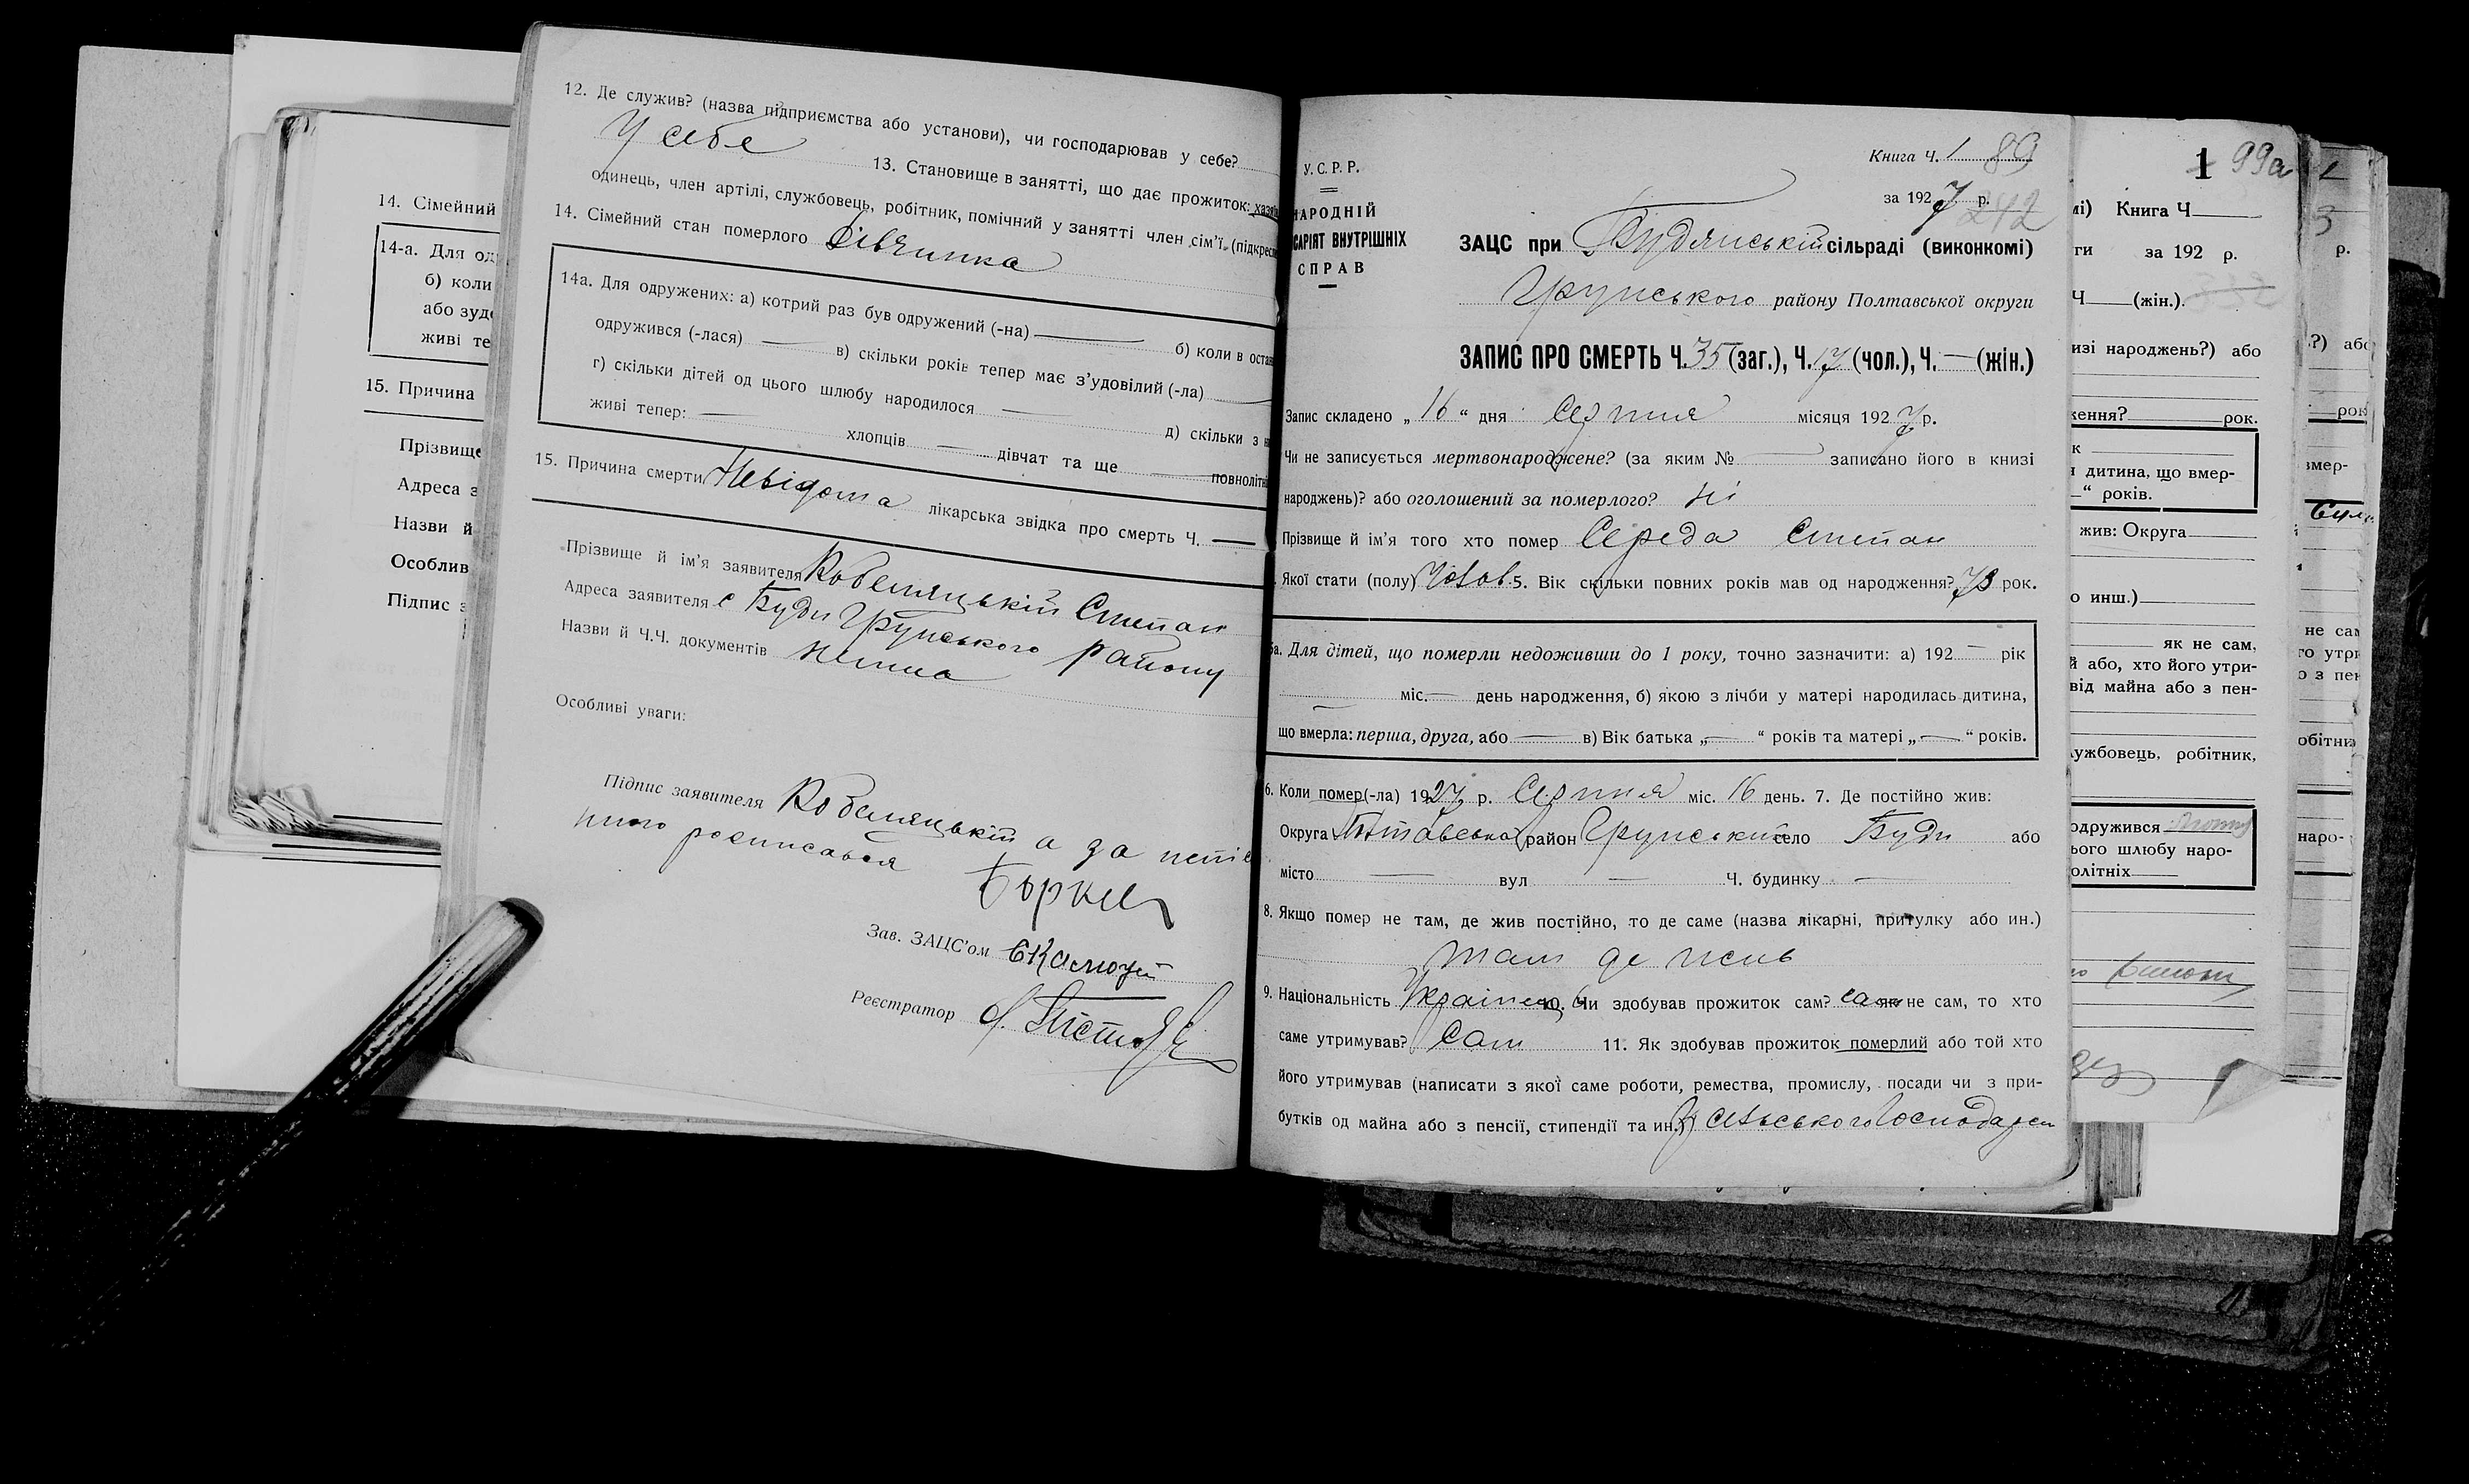 12. Де служив? (назва підприємства або установи), чи господарював у себе?
У себе 13. Становище в занятті, що дає прожиток: хазяїн
одинець, член артілі, службовець, робітник, помічний у занятті член сім'ї, (підкрес
14. Сімейний стан померлого дівчинка
14а. Для одружених: а) котрий раз був одружений (-на) — б) коли в остан
одружився (-лася) — в) скільки років тепер має з'удовілий (-ла) —
г) скільки дітей од цього шлюбу народилося — д) скільки з н
живі тепер: — хлопців — дівчат та ще — повнолітні
15. Причина смерти Невідома лікарська звідка про смерть Ч. —
Прізвище й ім'я заявителя Кобеляцький Степан
Адреса заявителя с Буди Грунського району
Назви й Ч.Ч. документів нема
Особливі уваги:
Підпис заявителя Кобеляцький а за непіс
росписався
Зав. ЗАЦС'ом
Реєстратор
14. Сімейний
14-а. Для од
б) коли
або зуд
живі те
15. Причина
Прізвище
Адреса з
Назви й
Особлив
Підпис з
Книга Ч. 1 89
У.С.Р.Р.
за 1927 р. 242
НАРОДНІЙ
САРІЯТ ВНУТРІШНІХ
СПРАВ
ЗАЦС при Будянській сільраді (виконкомі)
Грунського району Полтавської округи
ЗАПИС ПРО СМЕРТЬ Ч. 35 (заг.), Ч. 17 (чол.), Ч. — (жін.)
Запис складено „16" дня Серпня місяця 1927 р.
Чи не записується мертвонароджене? (за яким № — записано його в книзі
народжень)? або оголошений за померлого? Ні
Прізвище й ім'я того хто помер Середа Степан
Якої стати (полу) Чолов. 5. Вік скільки повних років мав од народження? 73 рок.
5а. Для дітей, що померли недоживши до 1 року, точно зазначити: а) 192 — рік
— міс. — день народження, б) якою з лічби у матері народилась дитина,
що вмерла: перша, друга, або — в) Вік батька „—" років та матері „—" років.
6. Коли помер (-ла) 1927 р. Серпня міс. 16 день. 7. Де постійно жив:
Округа Полтавська район Грунський село Буди або
місто — вул — Ч. будинку —
8. Якщо помер не там, де жив постійно, то де саме (назва лікарні, притулку або ин.)
там де жив
9. Національність Українец 10. Чи здобував прожиток сам? сам як не сам, то хто
саме утримував? Сам 11. Як здобував прожиток померлий або той хто
його утримував (написати з якої саме роботи, ремества, промислу, посади чи з при-
бутків од майна або з пенсії, стипендії та ин.) З сільського господарсн
1 99а
мі) Книга Ч
ги за 192 р.
Ч (жін.)
изі народжень?) або
ження? рок.
к
я дитина, що вмер-
—" років.
жив: Округа
о инш.)
як не сам,
й або, хто його утри-
від майна або з пен-
лужбовець, робітник,
одружився
ього шлюбу наро-
олітніх
3
р.
?) або
рок
вмер-
не сам
го утри
о з пен
обітни
наро-